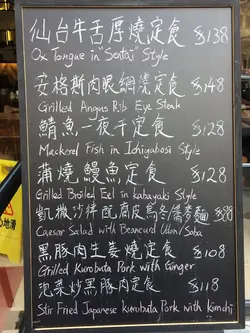 仙台牛舌厚燒定食 $138
Ox Tongue in "Sentai" Style
安格斯肉眼網燒定食 $148
Grilled Angus Rib Eye Steak
鯖魚一夜干定食 $128
Mackerel Fish in Ichiyabosi Style
蒲燒鰻魚定食 $128
Grilled Broiled Eel in kabayaki Style
凱撒沙律配腐皮烏冬/蕎麥麵 $88
Caesar Salad with Beancurd Udon/Soba
黑豚肉生姜燒定食 $108
Grilled Kurobuta Pork with Ginger
泡菜炒黑豚肉定食 $118
Stir Fried Japanese Kurobuta Pork with Kimchi
心地滑